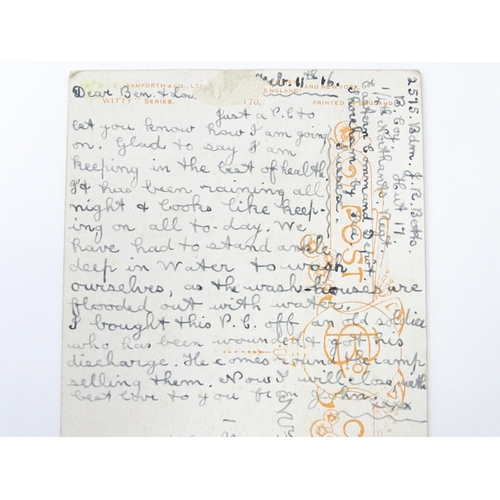 BAMFORTH & CO., LTD.
ENGLAND AND NEW YORK
"WITTY" SERIES.
170.
PRINTED
Dear Ben. & Lou
Feb. 11th 16.
Just a P.C to
let you know how I am going
on. Glad to say I am
keeping in the best of health
It has been raining all
night & looks like keep-
ing on all to-day. We
have had to stand ankle
deep in Water to wash
ourselves, as the wash-houses are
flooded out with water.
I bought this P.C. off an old soldier
who has been wounded & got his
discharge. He comes round the camp
selling them. Now I will close, with
best love to you from John. xxx
2595. Bdm. J. R. Betts.
B. Coy. Hut 17
Northants. Regt.
Eastern Command Depot
Shoreham by Sea
Sussex
POST